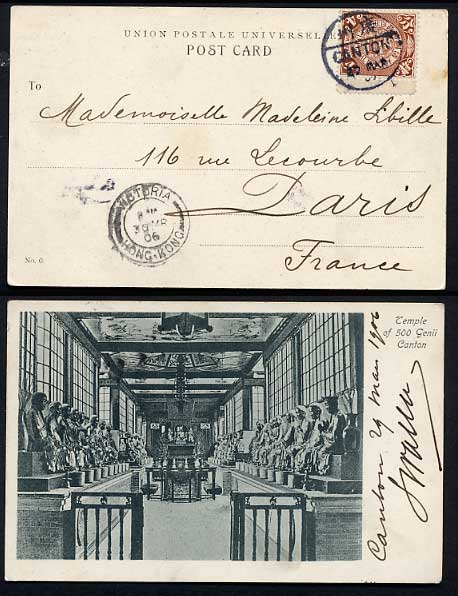 UNION POSTALE UNIVERSELLE
POST CARD
CANTON
To
Mademoiselle Madeleine Sibille
116 rue Lecourbe
Paris
France
VICTORIA
HONG-KONG
06
No. 6.
Temple
of 500 Genii
Canton
Canton 29 Mars 1906